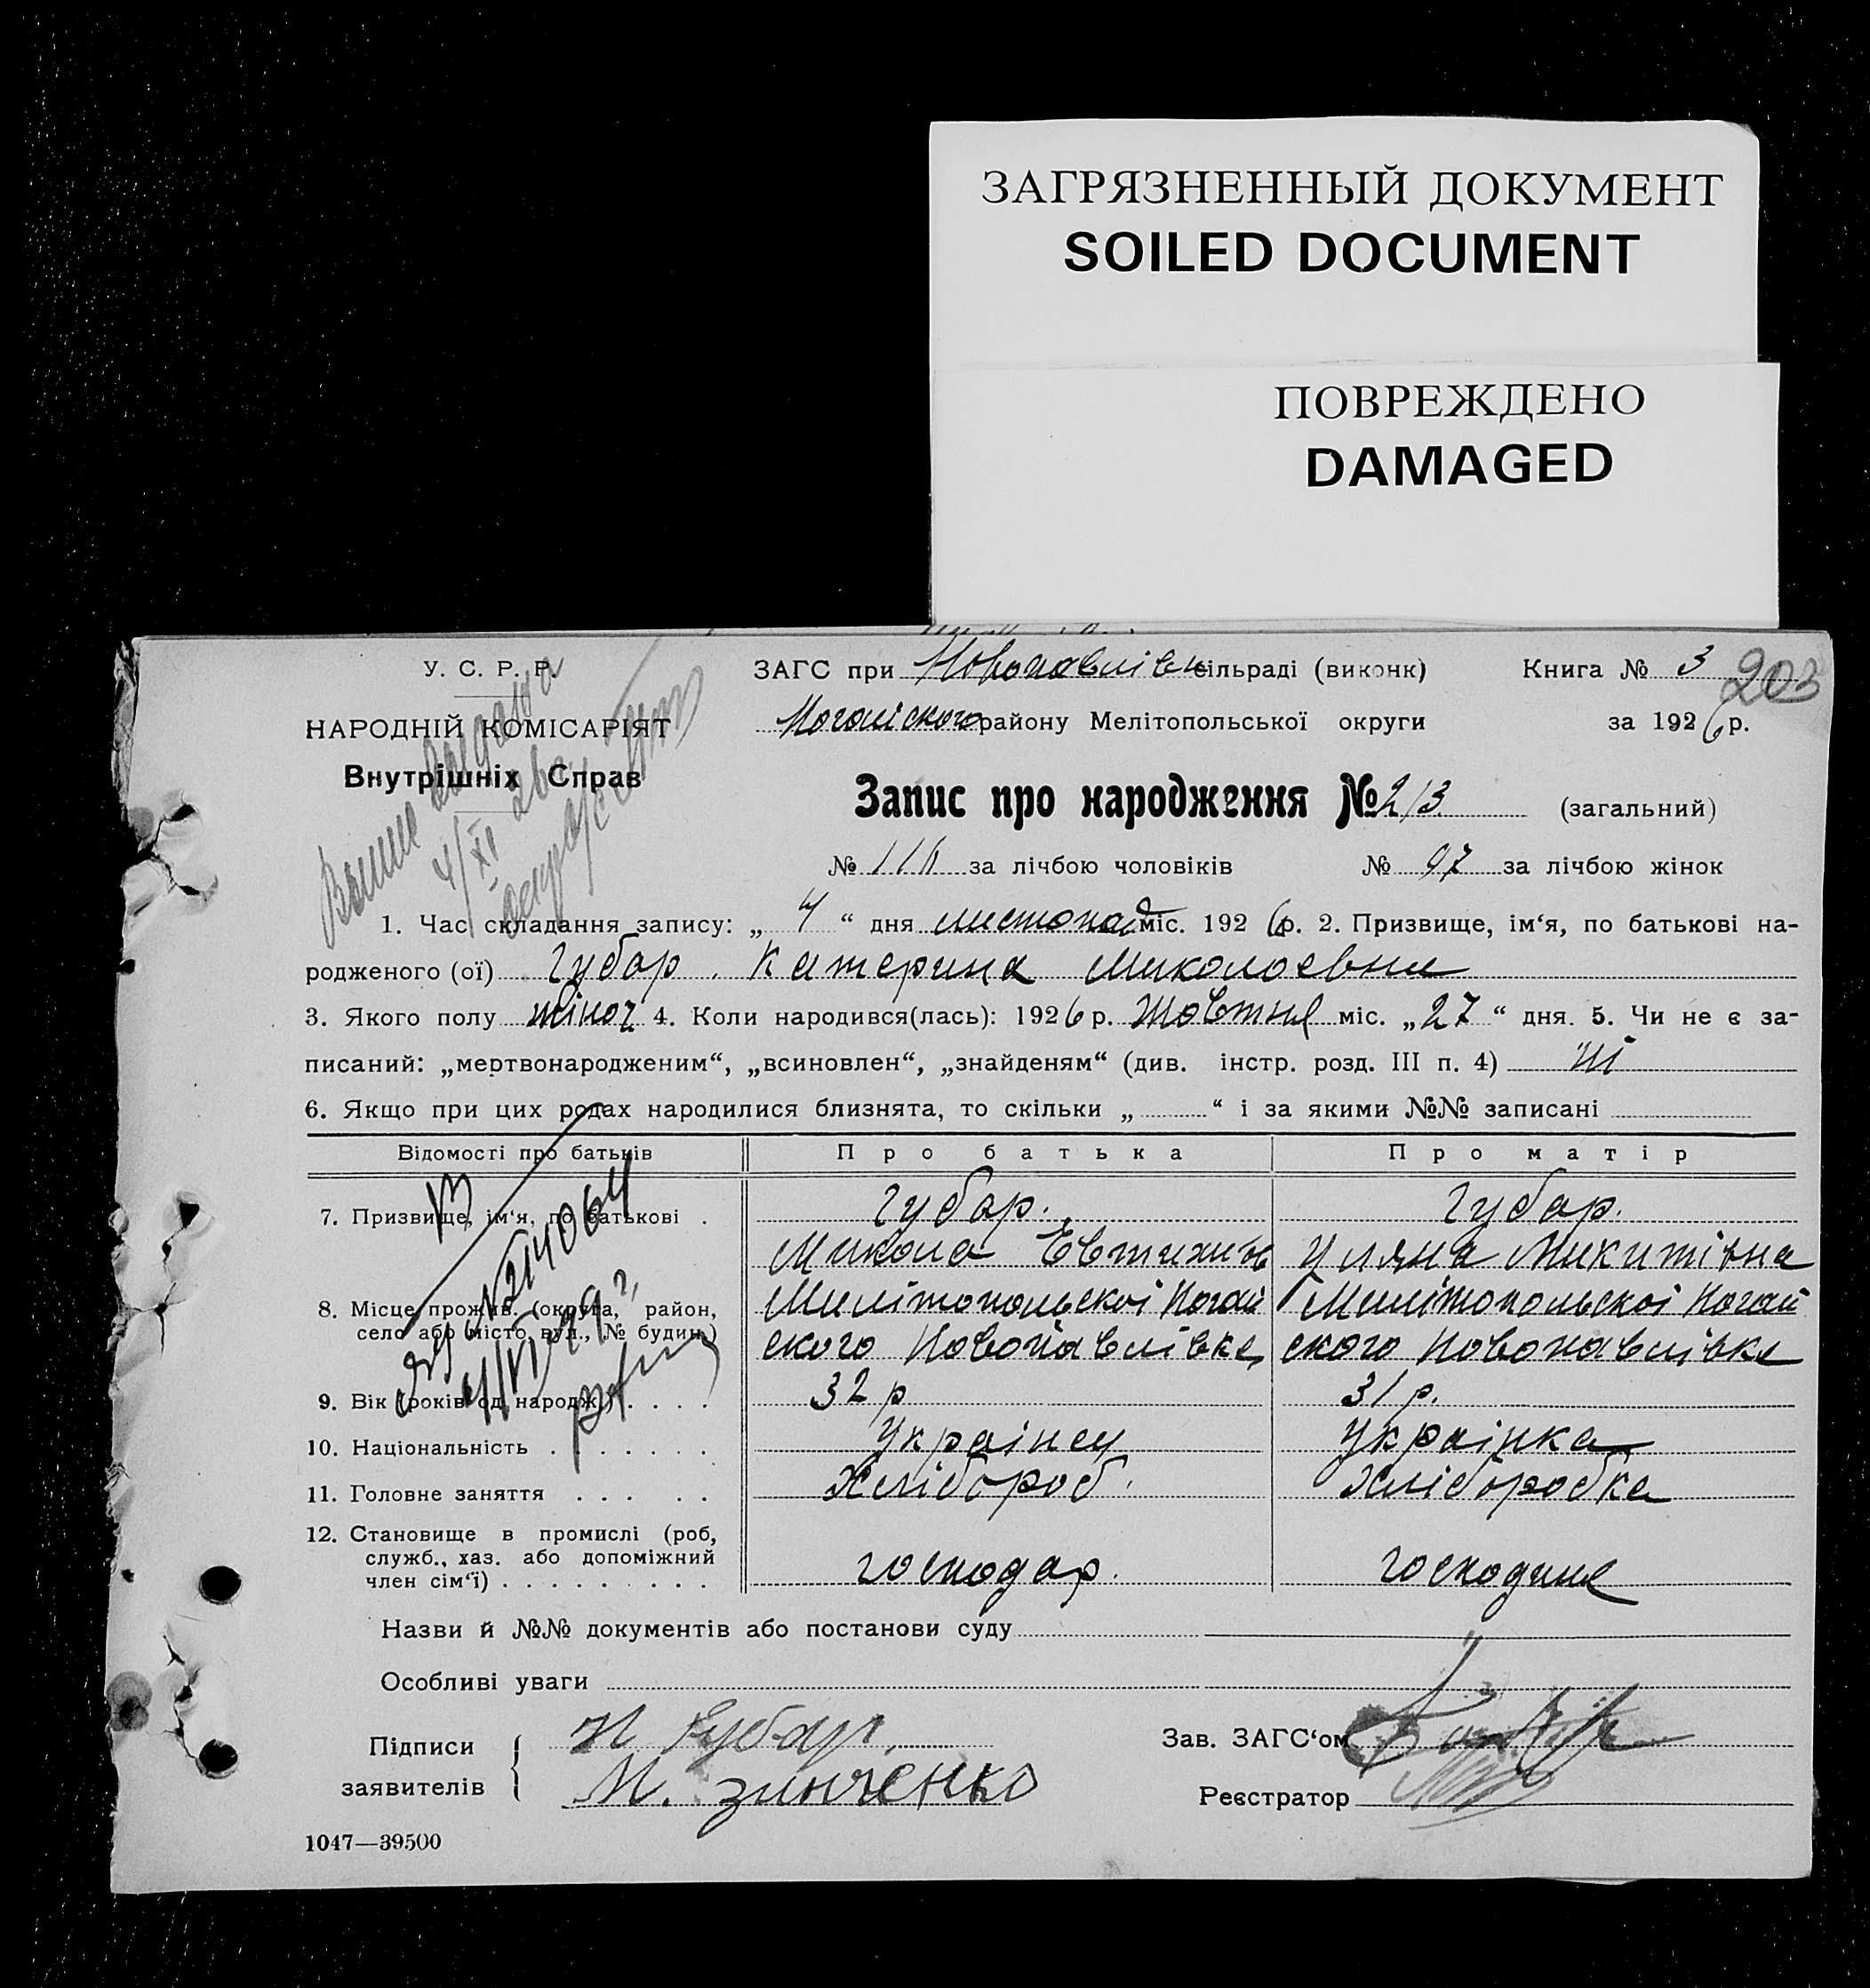 ЗАГРЯЗНЕННЫЙ ДОКУМЕНТ
SOILED DOCUMENT
ПОВРЕЖДЕНО
DAMAGED
У. С. Р. Р.
НАРОДНІЙ КОМІСАРІЯТ
Внутрішніх Справ
ЗАГС при Новопавлівк сільраді (виконк) Книга № 3 203
Ногайського району Мелітопольської округи за 1926 р.
Запис про народження № 213 (загальний)
№ 116 за лічбою чоловіків № 97 за лічбою жінок
1. Час складання запису: „ 4 “ дня листопад міс. 1926 р. 2. Призвище, ім‘я, по батькові на-
родженого (ої) Губар Катерина Миколаевна
3. Якого полу жіноч 4. Коли народився(лась): 1926 р. Жовтня міс. „27“ дня. 5. Чи не є за-
писаний: „мертвонародженим“, „всиновлен“, „знайденям“ (див. інстр. розд. III п. 4) ні
6. Якщо при цих родах народилися близнята, то скільки „ “ і за якими №№ записані
Відомості про батьків Про батька Про матір
7. Призвище, ім‘я, по батькові . Губар. Губар.
Микола Евтихиев Уляна Микитівна
8. Місце прожив. (округа, район, Милітопольскоі Ногай Милітопольскоі Ногай
село або місто, вул., № будин.) ского Новопавлівка ского Новопавлівка
9. Вік (років од народж.) . . . . 32 р 31 р.
10. Національність . . . . . . . Украінец Украінка
11. Головне заняття . . . . . Хлібороб. Хлібробка
12. Становище в промислі (роб,
служб., хаз. або допоміжний господар. господиня
член сім‘ї) . . . . . . . . .
№214064
Назви й №№ документів або постанови суду
Особливі уваги
Підписи Н Губарь Зав. ЗАГС‘ом
заявителів М. Зинченко Реєстратор
1047—39500